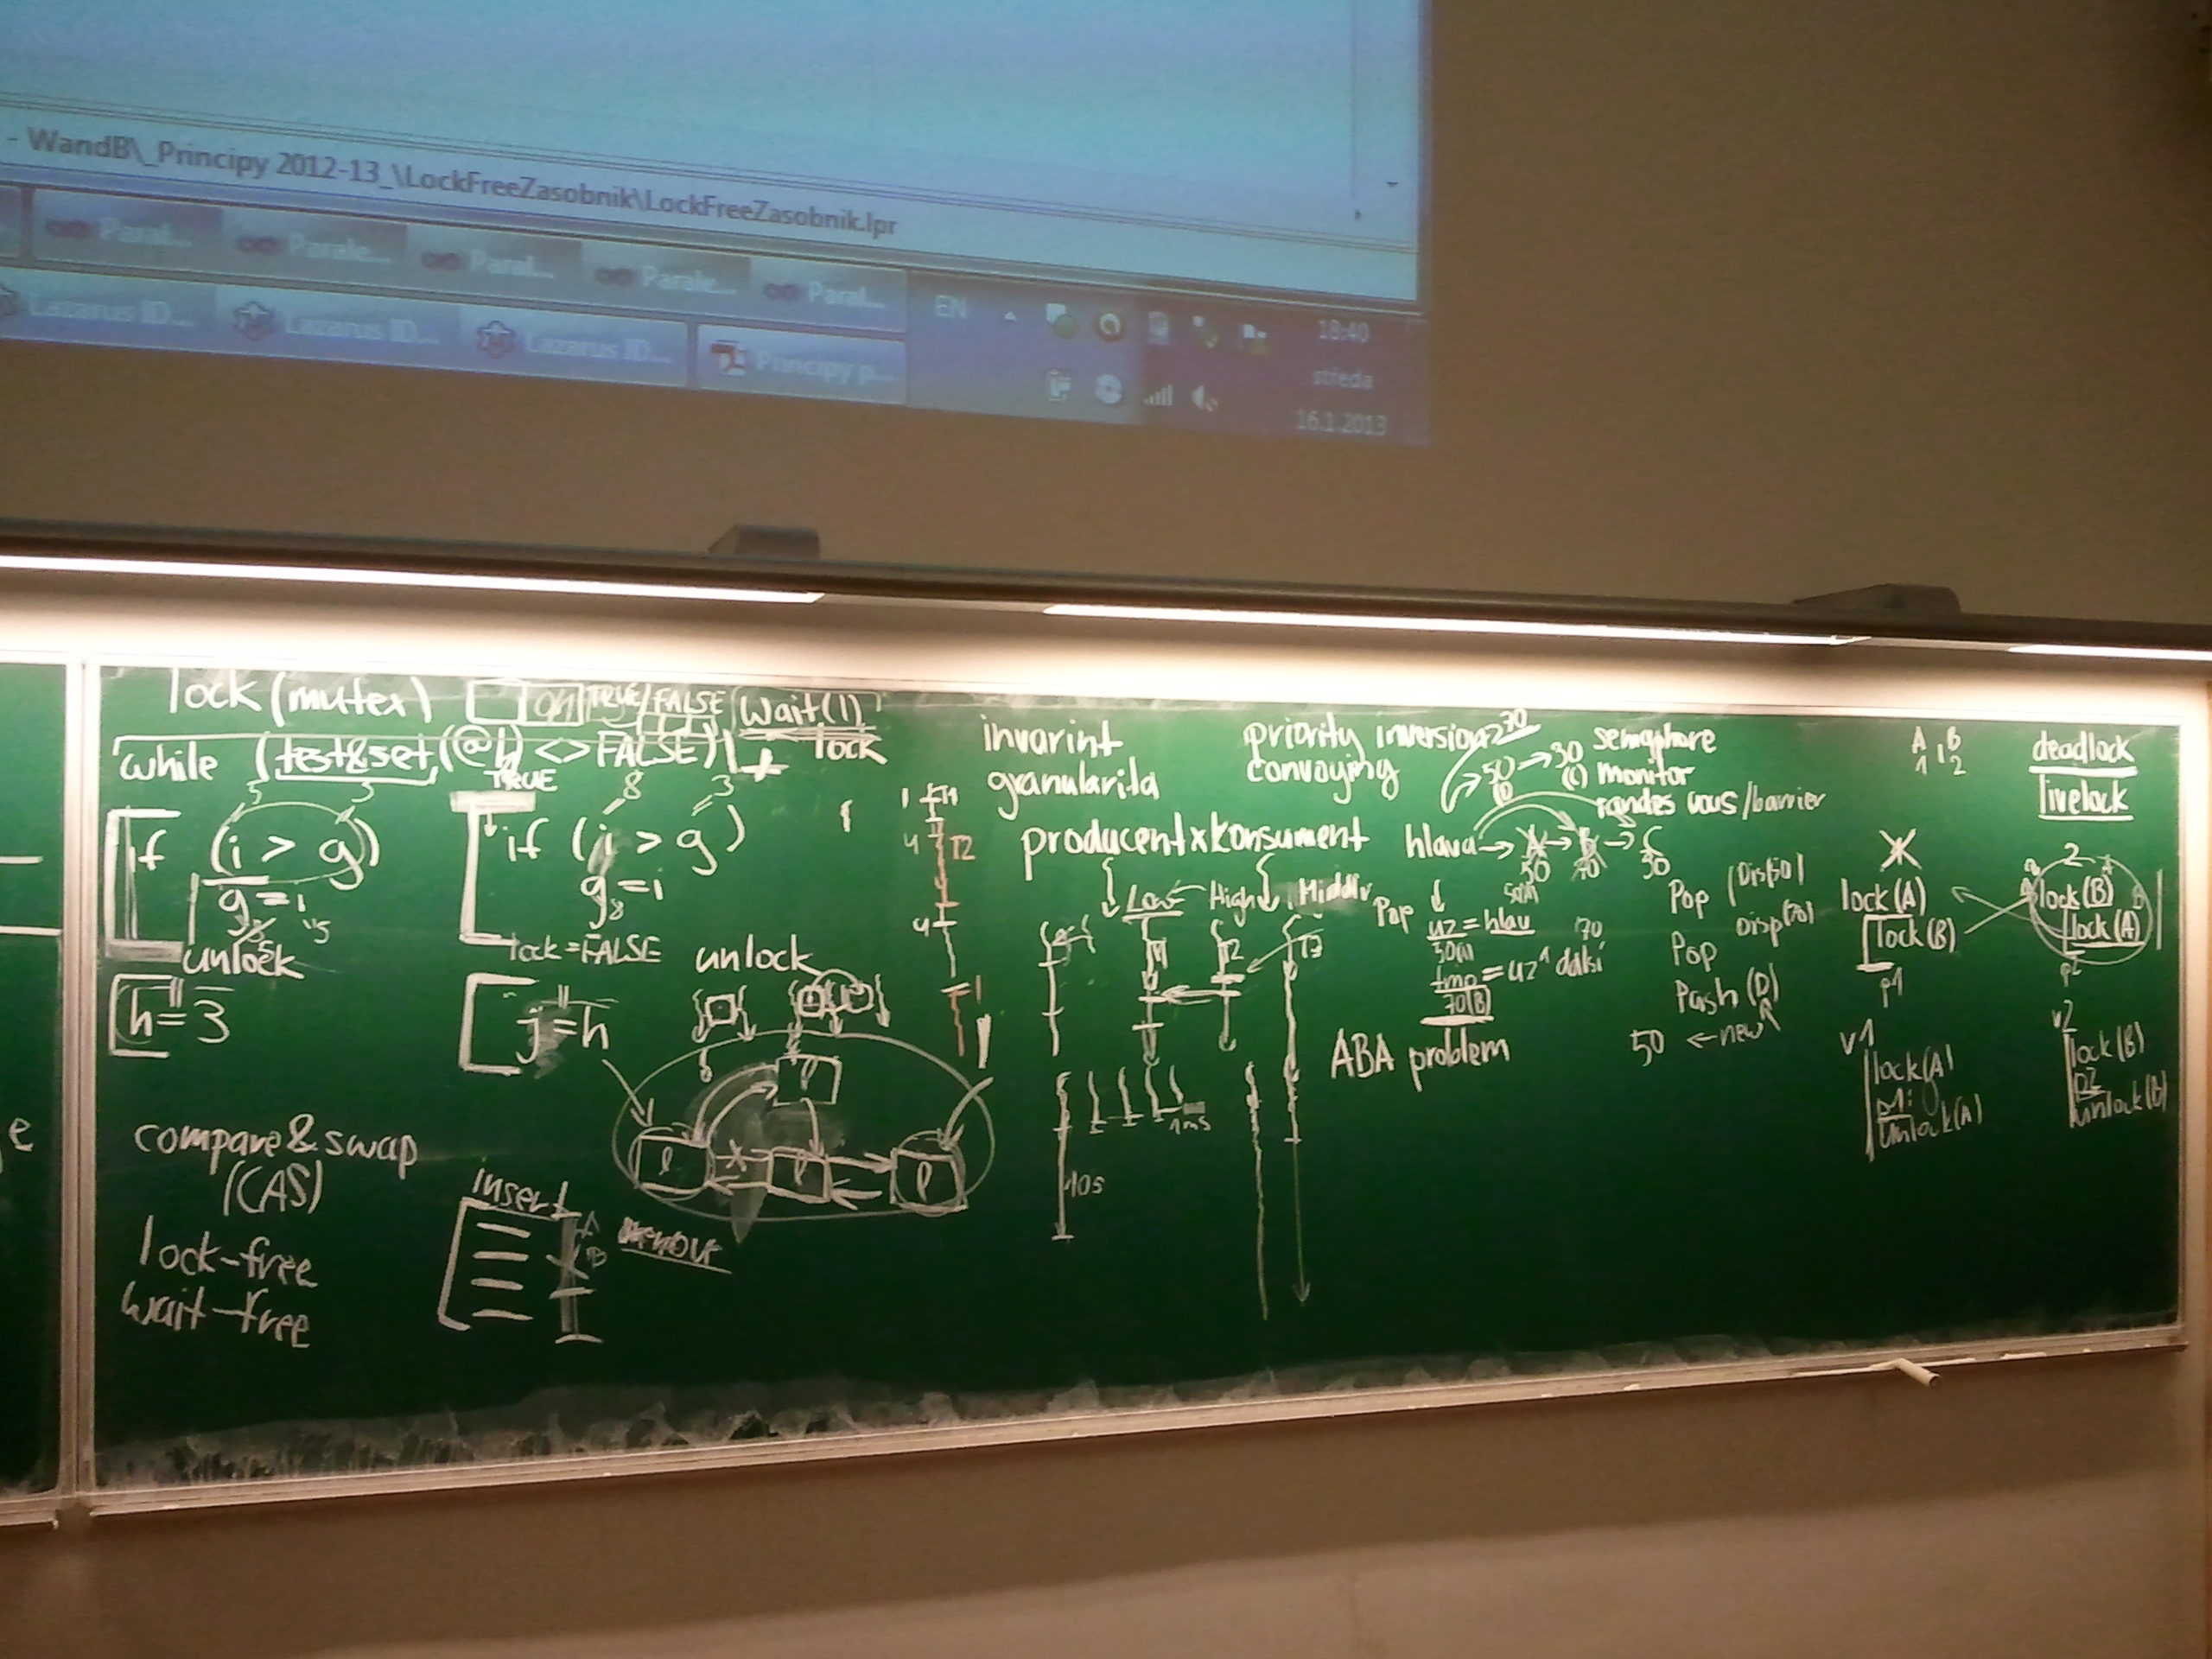 - WandB\_Principy 2012-13_\LockFreeZasobnik\LockFreeZasobnik.lpr
Paral...
Parale...
Paral...
Parale...
Paral...
EN
18:40
Lazarus ID...
Lazarus ID...
Lazarus ID...
Principy p...
středa
16.1.2013
lock (mutex)
TRUE/FALSE
Wait(1)
while (test&set (@h) <> FALSE)
lock
TRUE
5
3
if (i > g)
g=i
5
unlock
h=3
8
3
if (i > g)
g=i
8
lock=FALSE
unlock
j=h
compare & swap
(CAS)
lock-free
wait-free
insert
remove
T2
invarint
granularita
producent x konsument
Low
High
T2
T3
1ms
10s
priority inversion
convoying
70
50 → 30
semaphore
monitor
randes vous/barrier
hlava → A → B → C
50
70
30
Pop
uz = hlav
tmp = uz^ dalsi
70(B)
ABA problem
Pop
Pop
Push (D)
50 ← new
A
B
1
2
lock(A)
lock(B)
p1
v1
lock(A)
unlock(A)
deadlock
livelock
2
lock(B)
lock(A)
p2
v2
lock(B)
unlock(B)